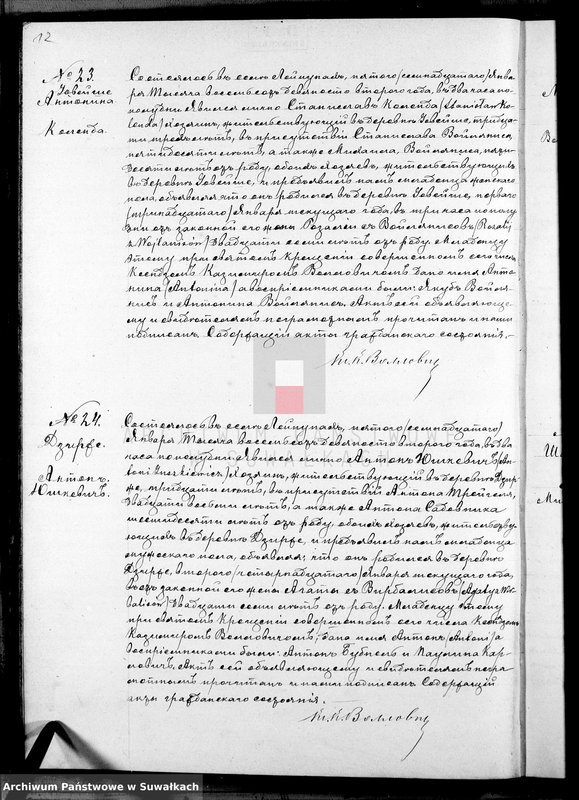 12
№ 23.
Говейше
Антонина
Коленда.
Состоялось въ селѣ Лейпунахъ, пятаго /семнадцатаго/ Янва-
ря Тысяча восемьсотъ девяносто второго года, въ два часа по
полудни. Явился лично Станиславъ Коленда /Stanisław Ko-
lenda/ хозяинъ, жительствующій въ деревнѣ Говейше, тридца-
ти трехъ лѣтъ, въ присутствіи Станислава Войтлянца,
пятидесяти лѣтъ, а также Михаила Войтлянца,
десяти лѣтъ отъ роду, обоихъ хозяевъ, жительствующихъ
въ деревнѣ Говейше, и предъявилъ намъ младенца женскаго
пола, объявляя что онъ родился въ деревнѣ Говейше, перваго
/тринадцатаго/ Января текущаго года, въ три часа по полу
дни отъ законной его жены Розаліи
/двадцати семи лѣтъ отъ роду. Младенцу
этому при святомъ крещеніи совершенномъ сего числа
Ксендзомъ Казимиромъ Волловичемъ дано имя Анто-
нина /Antonina/ а воспріемниками были: Якубъ Войтля-
нецъ и Антонина Войтлянецъ. Актъ сей объявляюще-
му и свидѣтелямъ неграмотнымъ прочитанъ и нами
подписанъ. Содержащій акты гражданскаго состоянія.
Кс. К. Волловичъ
№ 24.
Дзирже.
Антонъ
Юшкевичъ.
Состоялось въ селѣ Лейпунахъ, пятаго /семнадцатаго/
Января Тысяча восемьсотъ девяносто второго года, въ два
часа по полудни. Явился лично Антонъ Юшкевичъ /An-
toni Juszkiewicz/ хозяинъ, жительствующій въ деревнѣ Дзир-
же, тридцати лѣтъ, въ присутствіи Антона
двадцати восьми лѣтъ, а также Антона Садовника
шестидесяти лѣтъ отъ роду, обоихъ хозяевъ, жительству-
ющихъ въ деревнѣ Дзирже, и предъявилъ намъ младенца
мужескаго пола, объявляя: что онъ родился въ деревнѣ
Дзирже, второго /четырнадцатаго/ Января текущаго года,
отъ законной его жены Агаты съ Вирбаліисовъ /Agaty z Wir-
/двадцати семи лѣтъ отъ роду. Младенцу этому
при святомъ крещеніи совершенномъ сего числа Ксендзомъ
Казимиромъ Волловичемъ, дано имя Антонъ /Antoni/ а
воспріемниками были: Антонъ и Паулина Кар-
ловичъ. Актъ сей объявляющему и свидѣтелямъ негра-
мотнымъ прочитанъ и нами подписанъ. Содержащій
акты гражданскаго состоянія.
Кс. К. Волловичъ
Archiwum Państwowe w Suwałkach